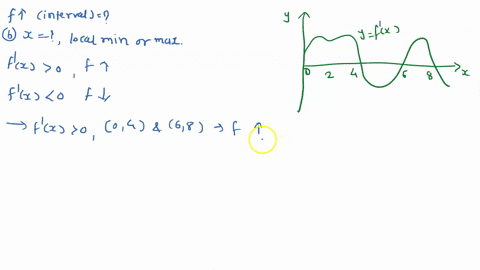 f↑ (interval)=?
ⓑ x=?, local min or max.
f'(x) > 0, f ↑
f'(x) < 0 f ↓
→ f'(x) > 0, (0,4) & (6,8) → f ↑
y
y=f'(x)
0 2 4 6 8 x